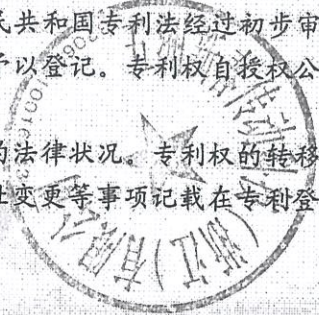 民共和国专利法经过初步审
予以登记。专利权自授权公
的法律状况。专利权的转移
址变更等事项记载在专利登
传动
(浙江)有限公